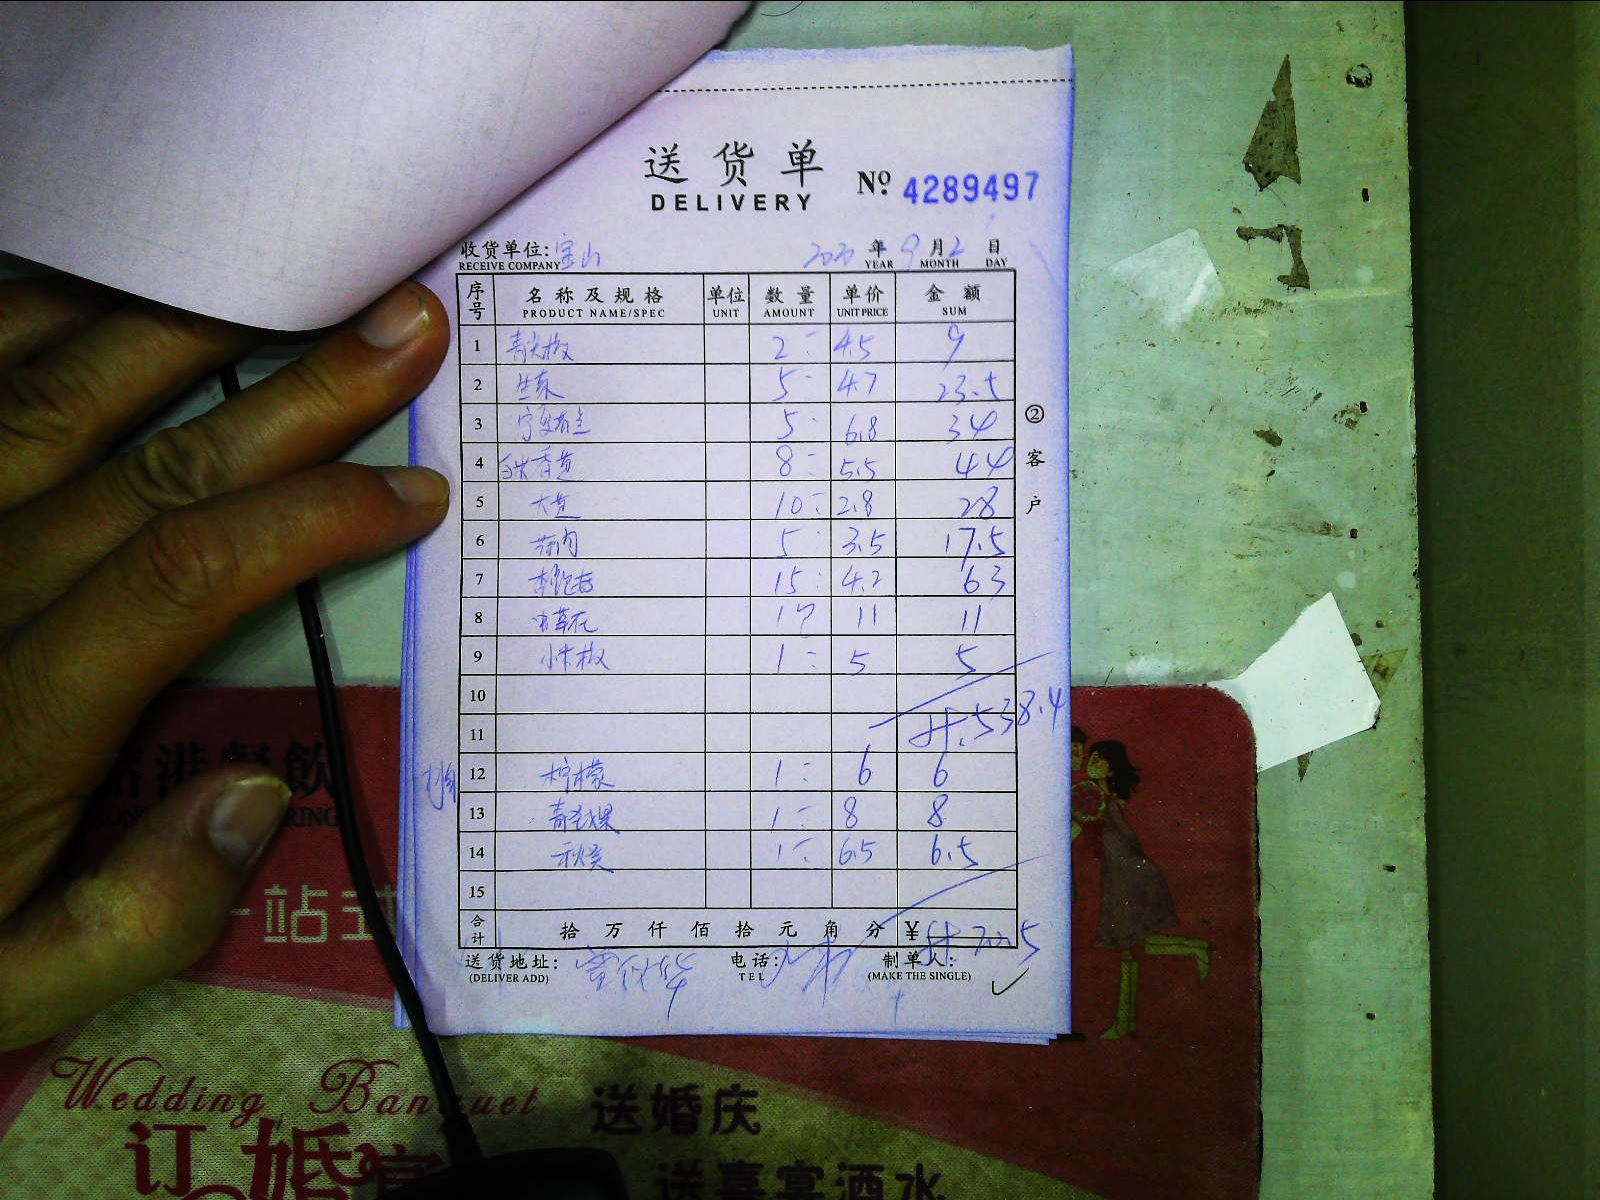 送货单
DELIVERY
No. 4289497
收货单位: 宝山 2020 年 9 月 2 日
RECEIVE COMPANY YEAR MONTH DAY
序号 名称及规格 单位 数量 单价 金额
PRODUCT NAME/SPEC UNIT AMOUNT UNIT PRICE SUM
1 青尖椒 2 4.5 9
2 生菜 5 4.7 23.5
3 5 6.8 34
4 8 5.5 44
5 10 2.8 28
6 5 3.5 17.5
7 15 4.2 63
8 虫草花 1 11 11
9 小米椒 1 5 5
10
11 计.538.4
12 柠檬 1 6 6
13 1 8 8
14 秋葵 1 6.5 6.5
15
合计 拾 万 仟 佰 拾 元 角 分 ¥
送货地址: 电话: 制单人:
(DELIVER ADD) TEL (MAKE THE SINGLE)
② 客户
港餐飲
一站式
Wedding Banquet
订婚宴
送婚庆
送喜宴酒水